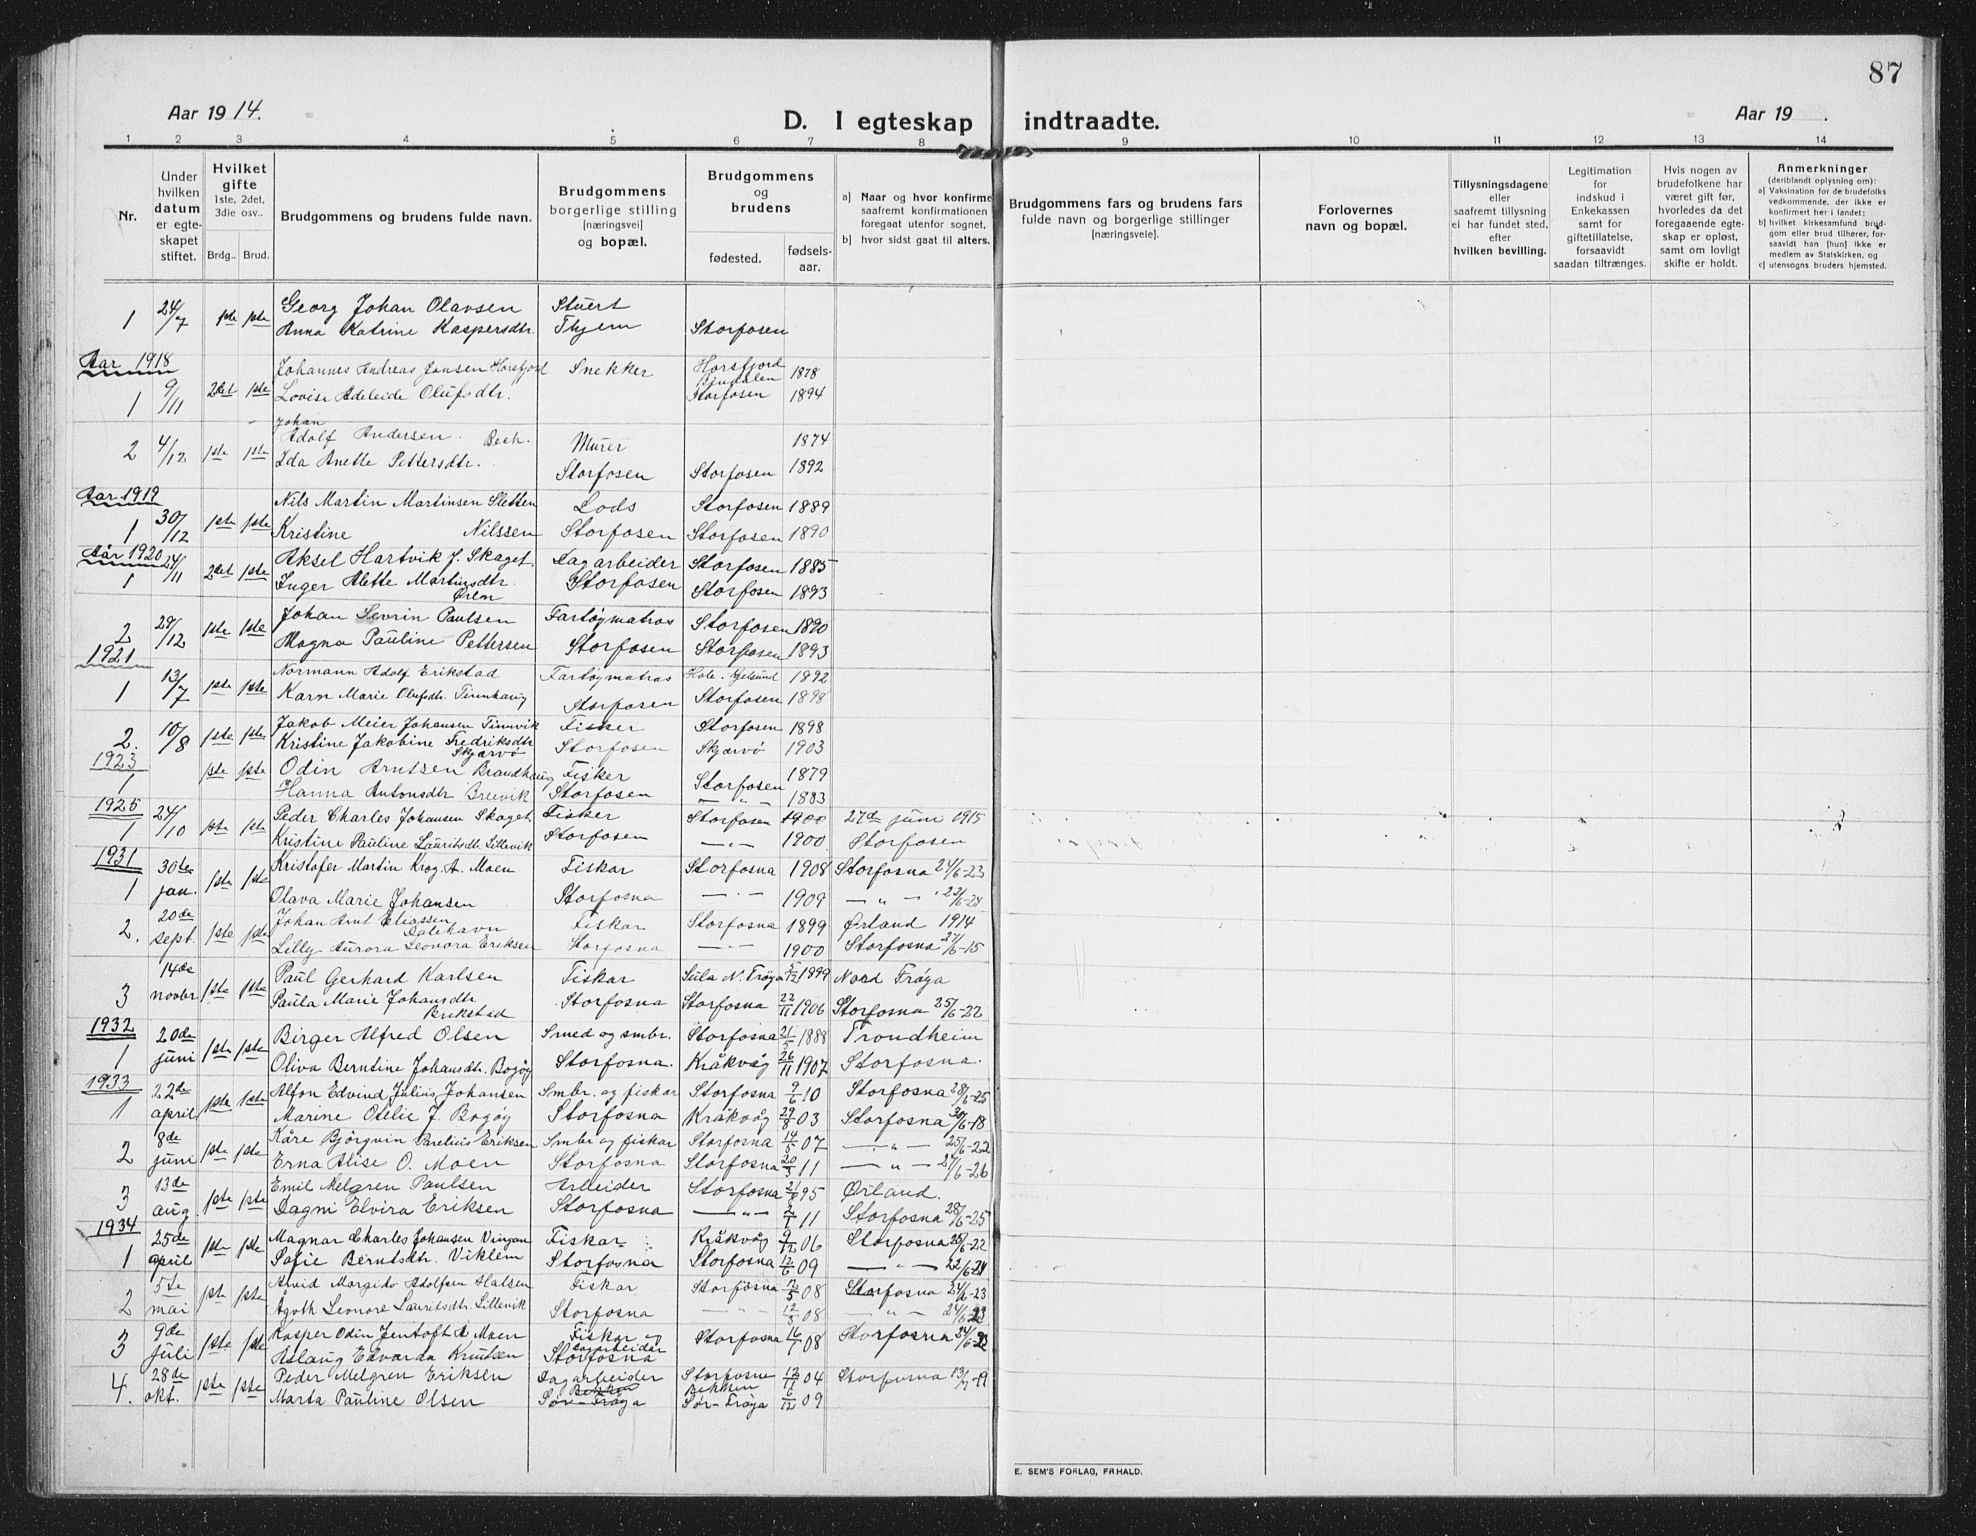 87
Aar 1914.
D. I egteskap indtraadte.
Aar 19 .
1 2 3 4 5 6 7 8 9 10 11 12 13 14
Nr.
Under hvilken datum er egteskapet stiftet.
Hvilket gifte 1ste, 2det, 3die osv..
Brdg.. Brud.
Brudgommens og brudens fulde navn.
Brudgommens borgerlige stilling [næringsvei] og bopæl.
Brudgommens og brudens
fødested. fødsels-aar.
a) Naar og hvor konfirme saafremt konfirmationen foregaat utenfor sognet,
b) hvor sidst gaat til alters.
Brudgommens fars og brudens fars fulde navn og borgerlige stillinger [næringsveie].
Forlovernes navn og bopæl.
Tillysningsdagene eller saafremt tillysning ei har fundet sted, efter hvilken bevilling.
Legitimation for indskud i Enkekassen samt for giftetillatelse, forsaavidt saadan tiltrænges.
Hvis nogen av brudefolkene har været gift før, hvorledes da det foregaaende egteskap er opløst, samt om lovligt skifte er holdt.
Anmerkninger (deriblandt oplysning om):
a) Vaksination for de brudefolks vedkommende, der ikke er konfirmert her i landet;
b) hvilket kirkesamfund brudgom eller brud tilhører, forsaavidt han [hun] ikke er medlem av Statskirken, og
c) utensogns bruders hjemsted.
1 24/7 1ste 1ste Georg Johan Olavsen Stuert
Anna Katrine Kaspersdtr. Thjem Storfosen
Aar 1918
Johannes Andreas Jonsen Horsfjord Snekker Horsfjord Bindalen 1878
1 9/11 2det 1ste Lovise Adeleide Olufsdtr. Storfosen 1894
Johan
Adolf Andersen Bech. Murer 1874
2 4/12 1ste 1ste Ida Anette Pettersdtr. Storfosen Storfosen 1892
Aar 1919
Nils Martin Martinsen Sletten Lods Storfosen 1889
1 30/12 1ste 1ste Kristine Nilssen Storfosen Storfosen 1890
Aar 1920
24/11 Aksel Hartvik J. Skaget Dagarbeider Storfosen 1885
1 2det 1ste Inger Alette Martinsdtr. Storfosen Storfosen 1893
29/12 1ste 1ste Johan Sevrin Paulsen Fartøymatros Storfosen 1890
2 Magna Pauline Pettersen Storfosen Storfosen 1893
1921
13/7 Normann Adolf Erikstad Fartøymatros 1892
1 1ste 1ste Karn Marie Olufsdtr. Storfosen Storfosen 1898
10/8 Jakob Meier Johansen Tinnvik Fisker Storfosen 1898
2. 1ste 1ste Kristine Jakobine Fredriksdtr Skjærvø Storfosen Skjærvø 1903
1923
1ste 1ste Odin Arntsen Brandhaug Fisker Storfosen 1879
1 Hanna Antonsdtr Breevik Storfosen — " — 1883
1925
24/10 Peder Charles Johansen Skaget Fisker Storfosen 1900 27de juni 1915
1 1ste 1ste Kristine Pauline Lauritsdtr. Lillevik Storfosen — " — 1900 Storfosen
1931
30te Kristofer Martin Krog A. Moen Fiskar Storfosna 1908 Storfosna 24/6-23
1 jan. 1ste 1ste Olava Marie Johansen Storfosna — " — 1909 — " — 22/6-24
20de Johan Arnt Eliassen Dalihavn Fiskar Storfosna 1899 Ørland 1914
2. sept. 1ste 1ste Lilly Aurora Leonora Eriksen Storfosna — " — 1900 Storfosna 27/6-15
14de Paul Gerhard Karlsen Fiskar Sula N. Frøya 1899 Nord Frøya
3 novbr 1ste 1ste Paula Marie Johansdtr Erikstad Storfosna Storfosna 22/11 1906 Storfosna 25/6-22
1932
20de Birger Alfred Olsen Smed og smbr. Storfosna 21/5 1888 Trondheim
1 juni 1ste 1ste Oliva Berntine Johansdtr. Bogøy Storfosna. Kråkvåg 26/11 1907 Storfosna.
1933
22de Alfon Edvind Julius Johansen Smbr. og fiskar Storfosna 9/6 10 Storfosna 28/6-25
1 april 1ste 1ste Marine Otelie J. Bogøy Storfosna Kråkvåg 29/8 03 Storfosna 30/6-18
8de Kåre Bjørgvin Parelius Eriksen Smbr og fiskar Storfosna 14/5 07 — " — 25/6-22
2 juni 1ste 1ste Erna Alise O. Moen Storfosna Storfosna 20/3 11 — " — 27/6-26
13de Emil Melgren Paulsen Arbeider Storfosna 21/8 95 Ørland.
3 aug. 1ste 1ste Dagni Elvira Eriksen Storfosna — " — 2/1 11 Storfosna 28/6-25
1934
25de Magnar Charles Johansen Fiskar Kråkvåg 9/12 06 Storfosna 25/6-22
1 april 1ste 1ste Sofie Berntsdtr. Viklem Storfosna Storfosna 12/6 09 — " — 22/6-24
5te Arvid Margido Adolfsen Halsen Fiskar Storfosna 7/5 08 Storfosna 24/6-23
2 mai 1ste 1ste Ågoth Leonore Lauritsdtr. Lillevik Storfosna — " — 12/8 08 — " — 24/6-23
9de Kasper Odin Jentoft A Moen Fiskar og dagarbeider Storfosna 16/7 08 Storfosna
3 juli 1ste 1ste Aslaug Edvarda Knutsen Storfosna
28de Peder Melgren Eriksen Dagarbeider Storfosna 12/11 04 Storfosna 13/7-19
4. okt. 1ste 1ste Marta Pauline Olsen Bekken Sør-Frøya Bekken Sør-Frøya 6/12 09
E. SEM'S FORLAG, FR.HALD.